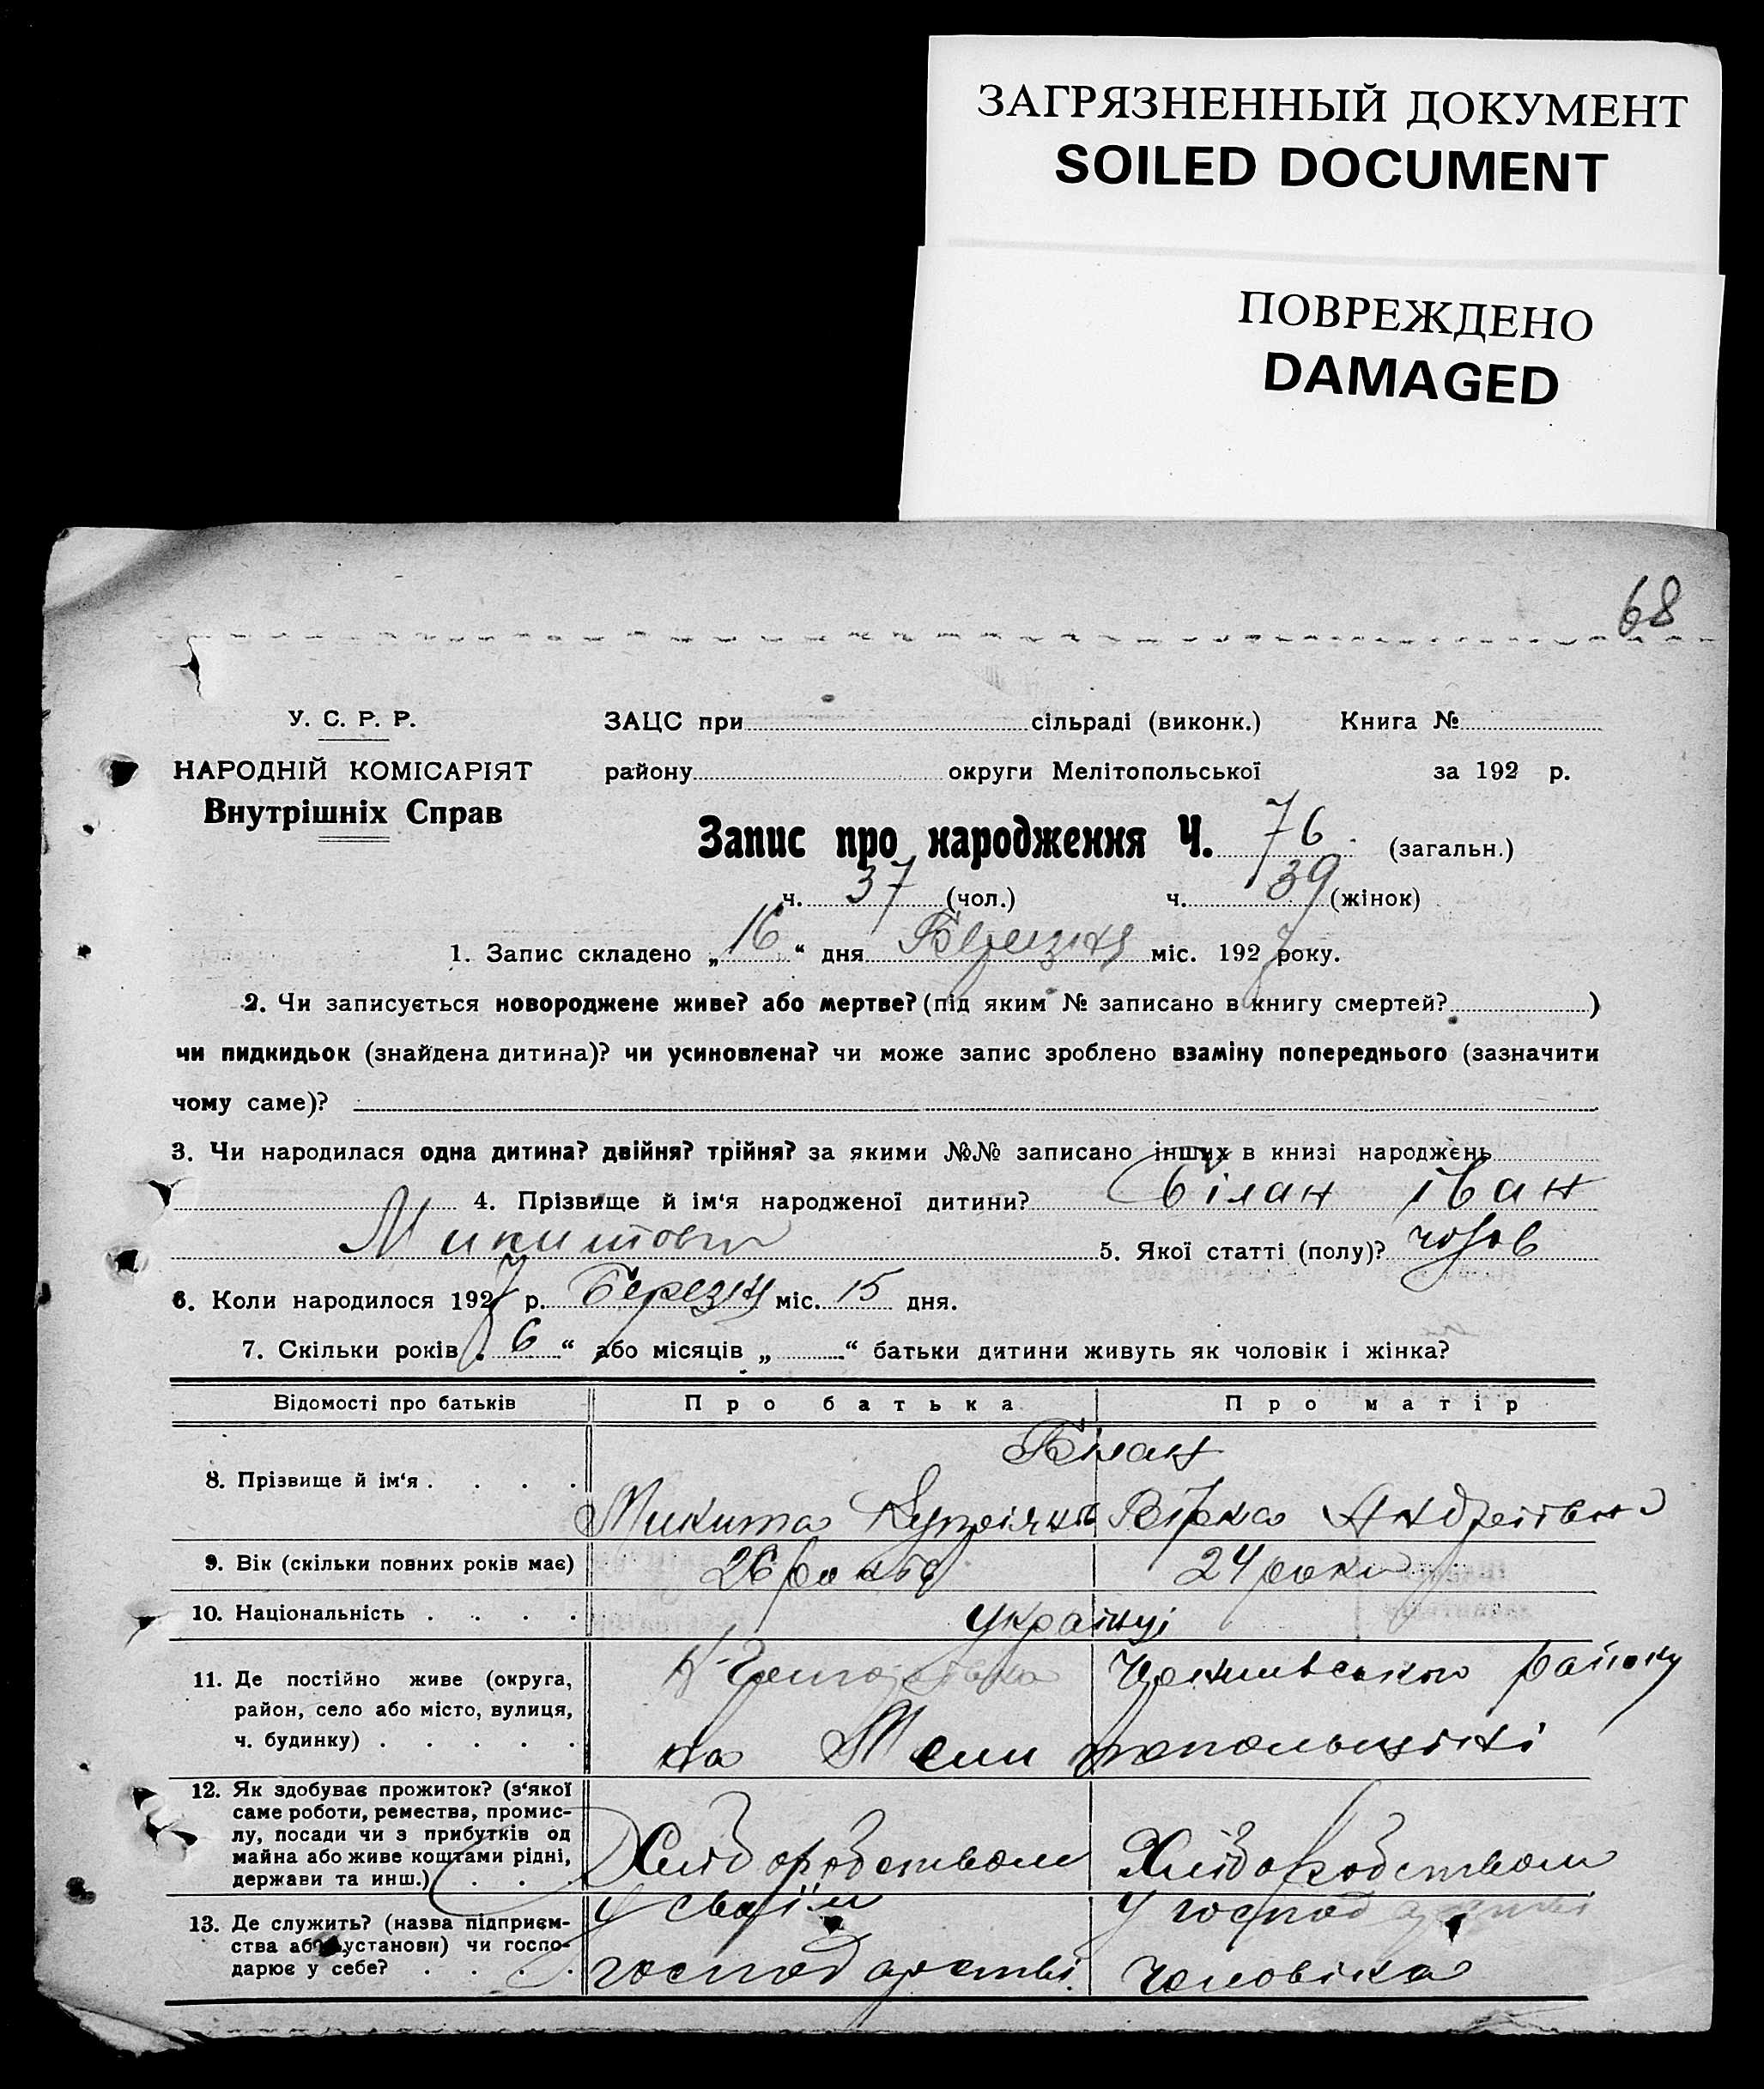 ЗАГРЯЗНЕННЫЙ ДОКУМЕНТ
SOILED DOCUMENT
ПОВРЕЖДЕНО
DAMAGED
68
У. С. Р. Р.
НАРОДНІЙ КОМІСАРІЯТ
Внутрішніх Справ
ЗАЦС при сільраді (виконк.) Книга №
району округи Мелітопольської за 192 р.
Запис про народження Ч. 76 (загальн.)
ч. 37 (чол.) ч. 39 (жінок)
1. Запис складено „16“ дня Березня міс. 1927 року.
2. Чи записується новороджене живе? або мертве? (під яким № записано в книгу смертей? )
чи пидкидьок (знайдена дитина)? чи усиновлена? чи може запис зроблено взаміну попереднього (зазначити
чому саме)?
3. Чи народилася одна дитина? двійня? трійня? за якими №№ записано інших в книзі народжень
4. Прізвище й ім‘я народженої дитини? Білан Іван
Микитови 5. Якої статті (полу)? чолов
6. Коли народилося 1927 р. Березня міс. 15 дня.
7. Скільки років „6“ або місяців „ “ батьки дитини живуть як чоловік і жінка?
Відомості про батьків Про батька Про матір
8. Прізвище й ім‘я . . . .
Білан
Микита Купріянов Вірка Андреівна
9. Вік (скільки повних років має) 26 років 24 роки
10. Національність . . . . Українці
11. Де постійно живе (округа,
район, село або місто, вулиця,
ч. будинку) . . . . .
району
на Мелитопольщині
12. Як здобуває прожиток? (з‘якої
саме роботи, ремества, промис-
лу, посади чи з прибутків од
майна або живе коштами рідні,
держави та инш.) . . .
Хліборобством Хліборобством
13. Де служить? (назва підприєм-
ства або установи) чи госпо-
дарює у себе? . . . .
У своїм У господарстві
господарстві. чоловіка